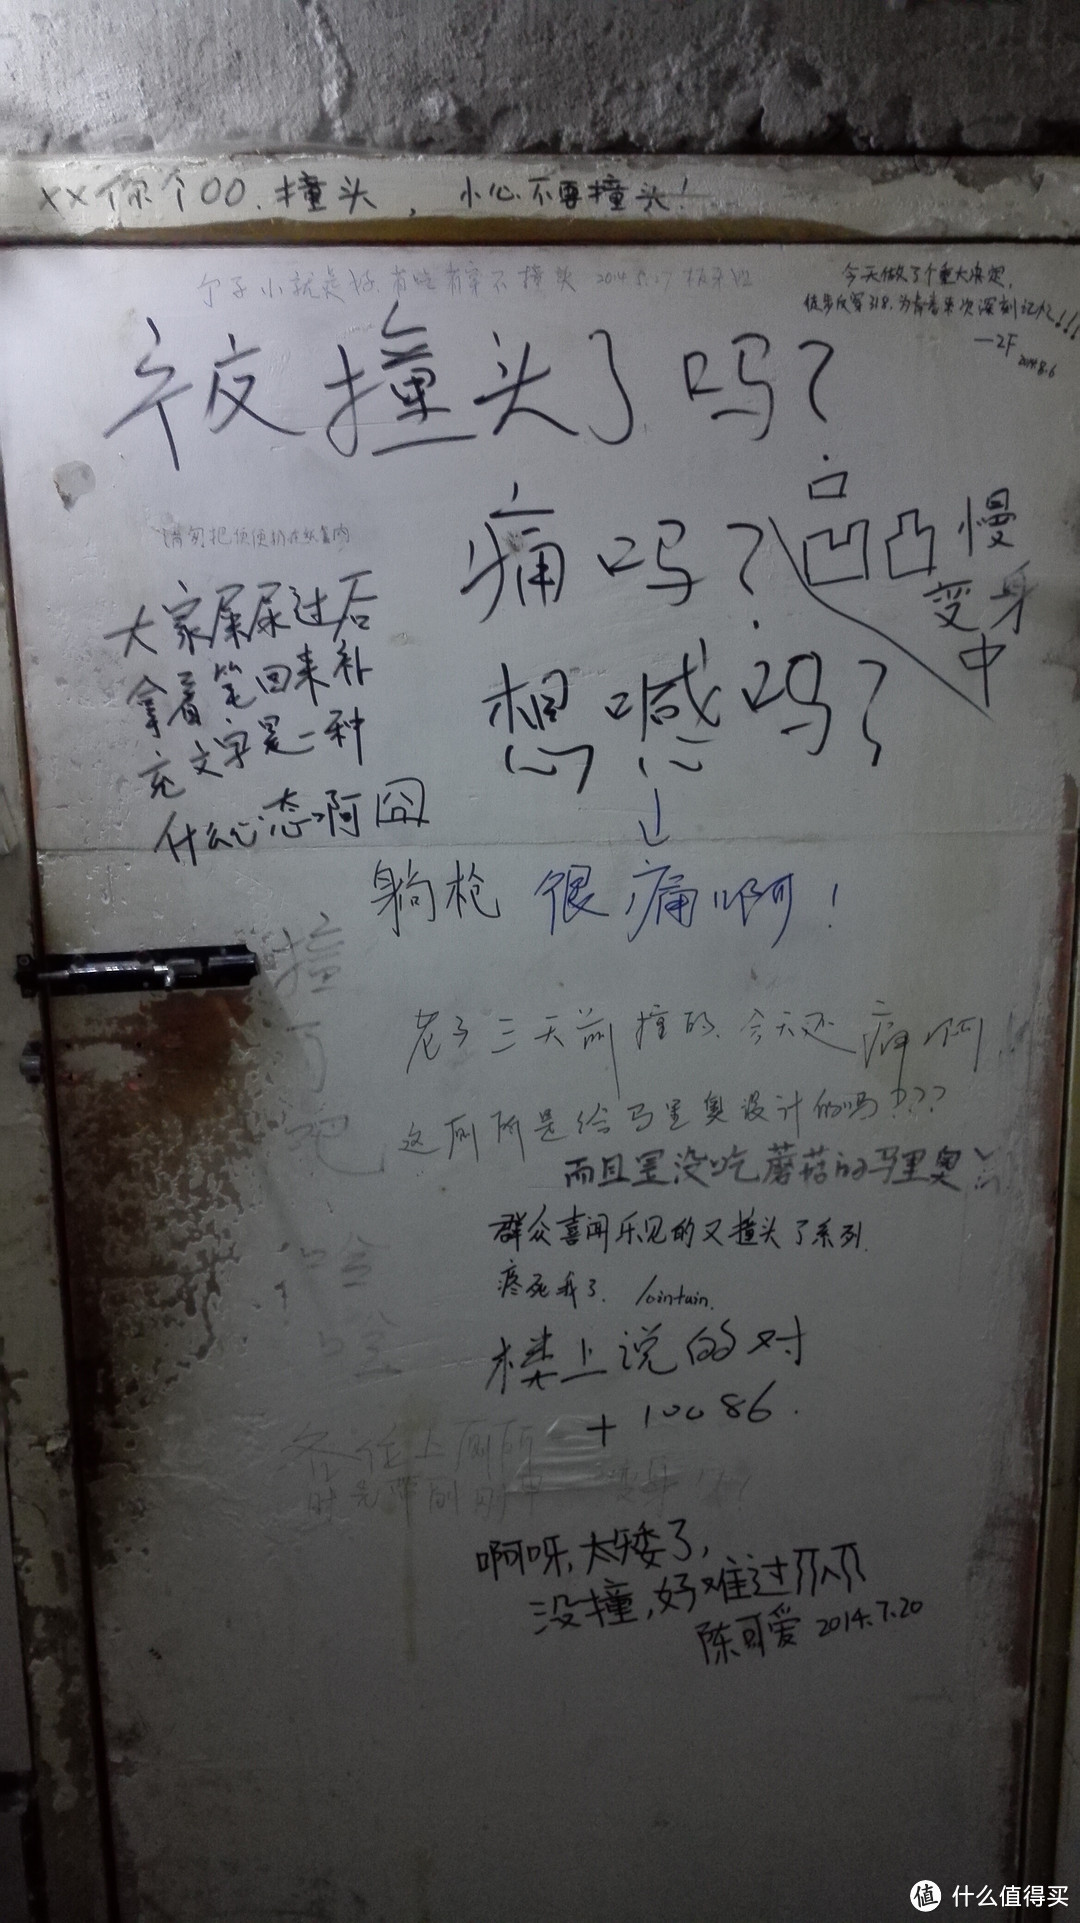 XX你个OO.撞头，小心不要撞头！
个子小就是好.有 有 不撞头 2014.5.17
今天做了个重大决定,
徒步反穿318.为青春来次深刻记忆!!!
—ZF 2014.8.6
被撞头了吗?
痛吗?
凸
凹凸慢
变身
中
请勿把 便扔在纸篓内
想喊吗?
大家屎尿过后
拿着笔回来补
充文字是一种
什么心态啊囧
躺枪 很痛啊!
撞
了
吧
哈
哈
老子三天前撞的.今天还痛啊
这厕所是给马里奥设计的吗???
而且是没吃蘑菇的马里奥
群众喜闻乐见的又撞头了系列.
疼死我了. lointain.
楼上说的对
+10086.
各位上厕所
时先
啊呀,太矮了,
没撞,好难过
陈可爱 2014.7.20
值 什么值得买